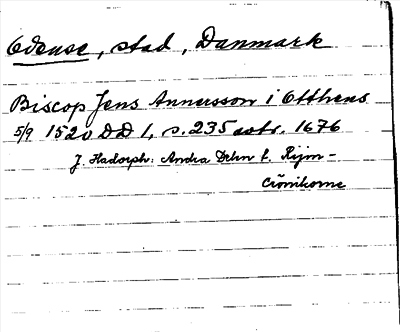 Odense, stad, Danmark
Biscop Jens Annersson i Otthens
5/9 1520 DD 1, s. 235 . 1676
J. Hadorph: Andra Delen t. Rijm-
Crönikorne